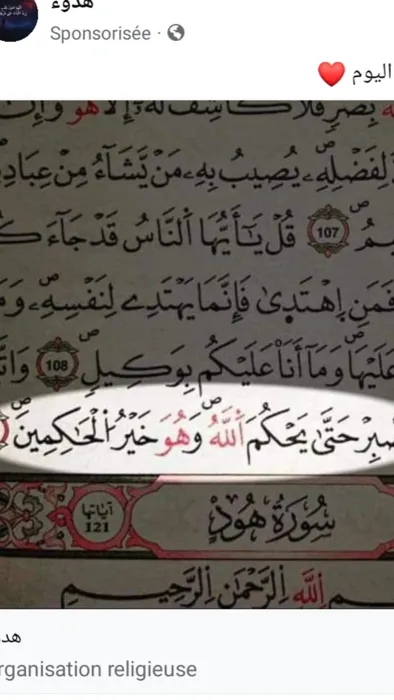 هدوء
Sponsorisée ·
اليوم ❤️
بِضُرٍّ فَلَا كَاشِفَ لَهُۥٓ إِلَّا هُوَ وَإِن
لِفَضْلِهِۦ يُصِيبُ بِهِۦ مَنْ يَّشَآءُ مِنْ عِبَادِ
107 قُلْ يَٰٓأَيُّهَا اَ۬لنَّاسُ قَدْ جَآءَ
فَمَنِ اِ۪هْتَد۪يٰ فَإِنَّمَا يَهْتَدِے لِنَفْسِهِۦ وَمَ
عَلَيْهَا وَمَآ أَنَا عَلَيْكُم بِوَكِيلٍ 108 وَاتَّ
صْبِرْ حَتَّىٰ يَحْكُمَ اَ۬للَّهُ وَهُوَ خَيْرُ اُ۬لْحَٰكِمِينَ
سُورَةُ هُودٍ آياتها 121
اِ۬للَّهِ اِ۬لرَّحْمَٰنِ اِ۬لرَّحِيمِ
هدو
rganisation religieuse